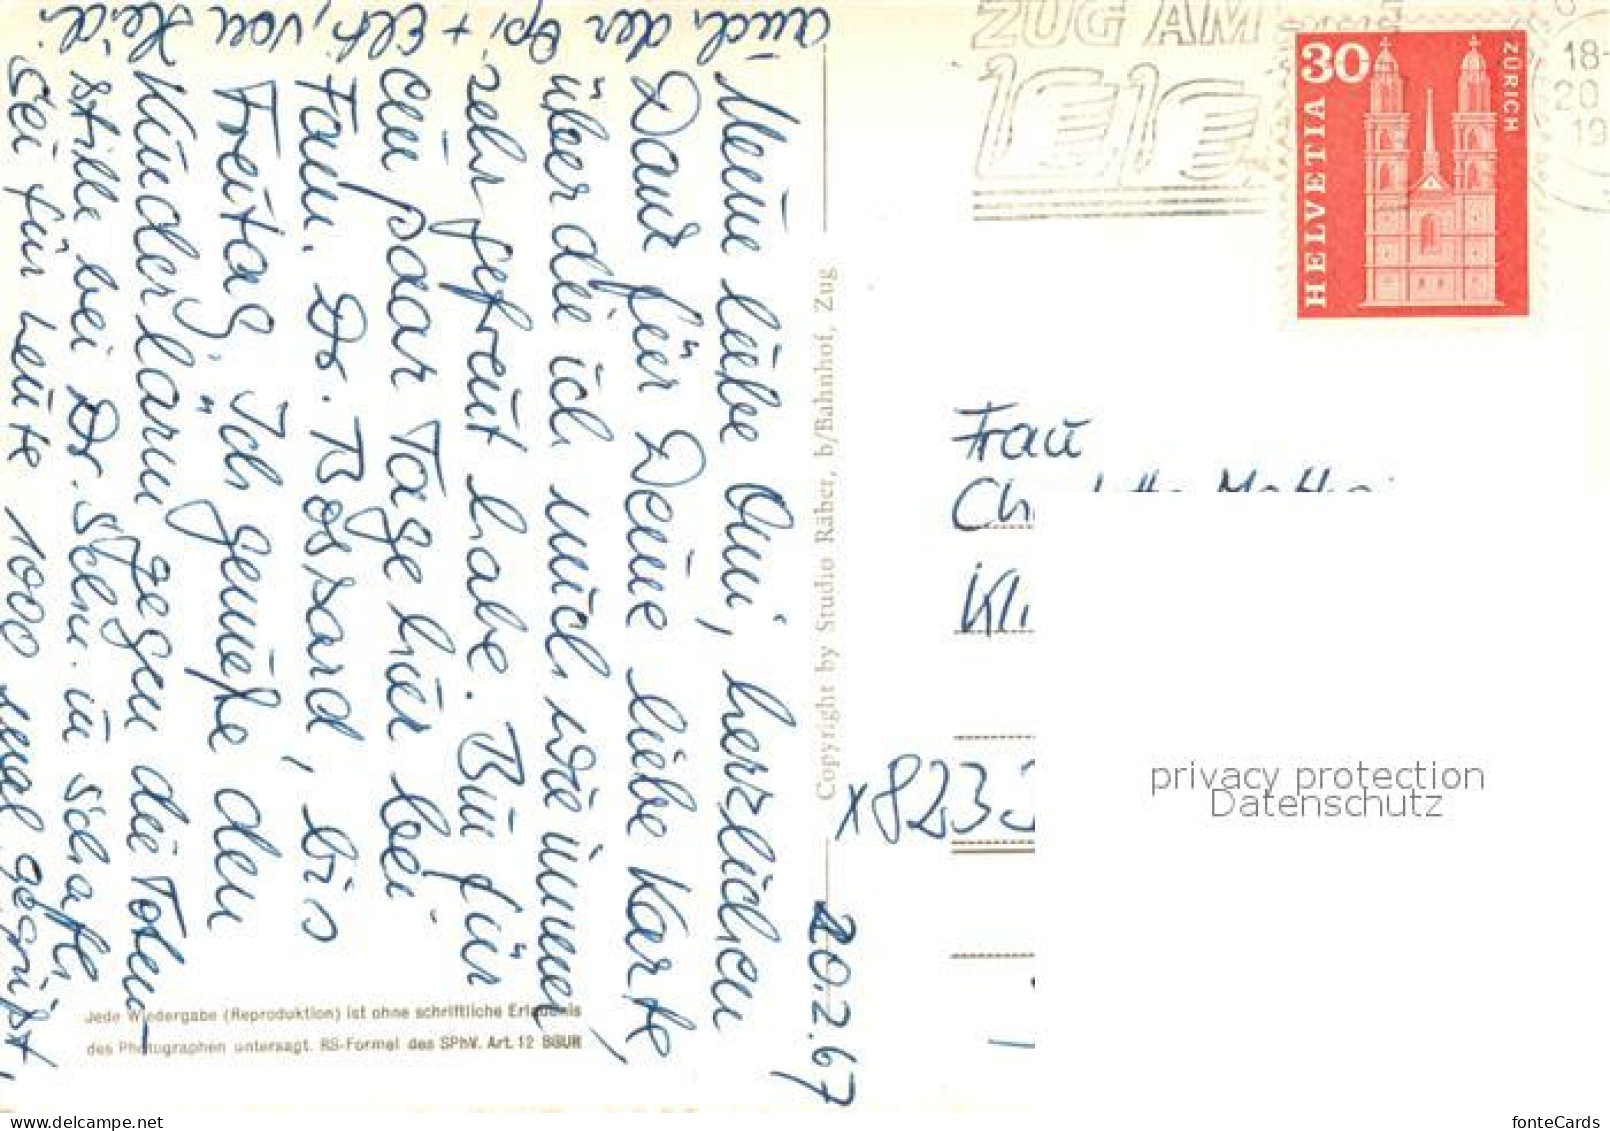 20.2.67
Meine liebe Omi, herzlichen
Dank für Deine liebe Karte,
über die ich mich wie immer
sehr gefreut habe. Bin für
ein paar Tage hier bei
Fam. Dr. Bossard, bis
Freitag. Ich genieße den
Kinderlärm gegen die Toten-
stille bei Dr. Schn. in Schaffh.
Sei für heute 1000 mal gegrüßt,
auch der Opi + Elfi, von Heidi.
Copyright by Studio Räber, b/Bahnhof, Zug
Jede Wiedergabe (Reproduktion) ist ohne schriftliche Erlaubnis
des Photographen untersagt. RS-Formel des SPhV. Art. 12 BGUR
ZUG AM
18-
20
19
30
ZÜRICH
HELVETIA
Frau
x8233
privacy protection
Datenschutz
fonteCards